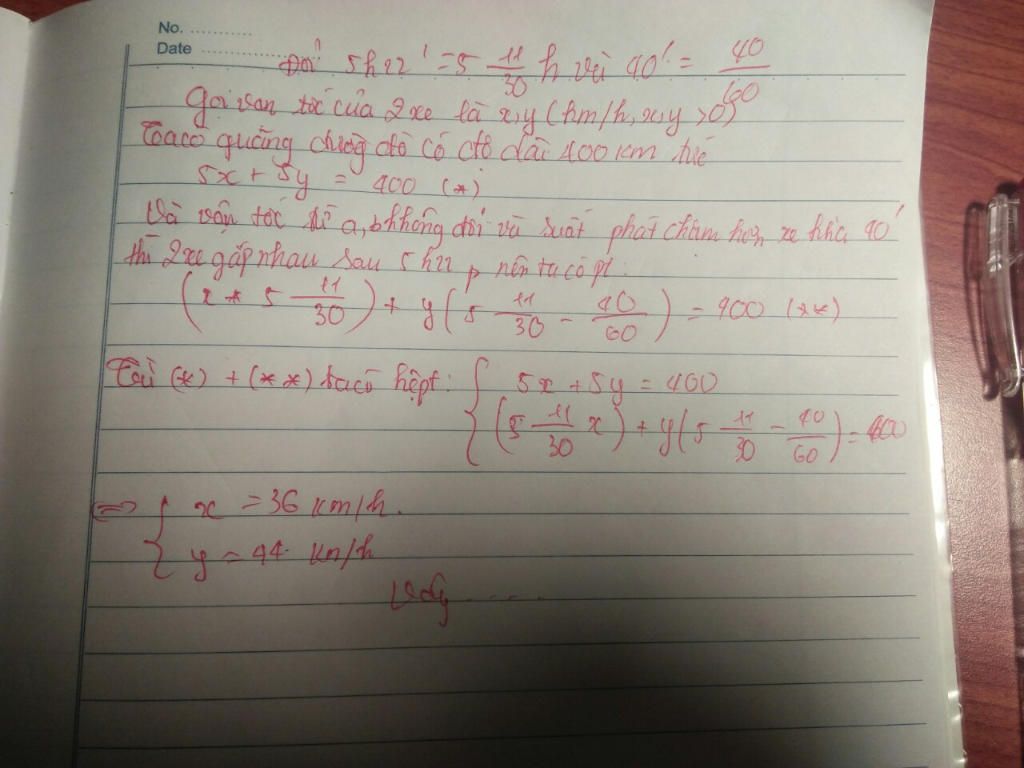 No. ............
Date ..................
Đổi 5h22' = 5 11/30 h và 40' = 40/60
Gọi van tốc của 2 xe là x,y (km/h, x,y >0)
Ta có quãng đường đó có độ dài 400 km
5x + 5y = 400 (*)
Và vận tốc từ a,b không đổi và suất phát chậm hơn xe kia 40'
thì 2 xe gặp nhau sau 5h22 p nên ta có pt:
(x * 5 11/30) + y(5 11/30 - 40/60) = 400 (**)
Từ (*) + (**) ta có hệ pt: { 5x + 5y = 400
(5 11/30 x) + y(5 11/30 - 40/60) = 400
<=> { x = 36 km/h.
y = 44 km/h
Vậy ....